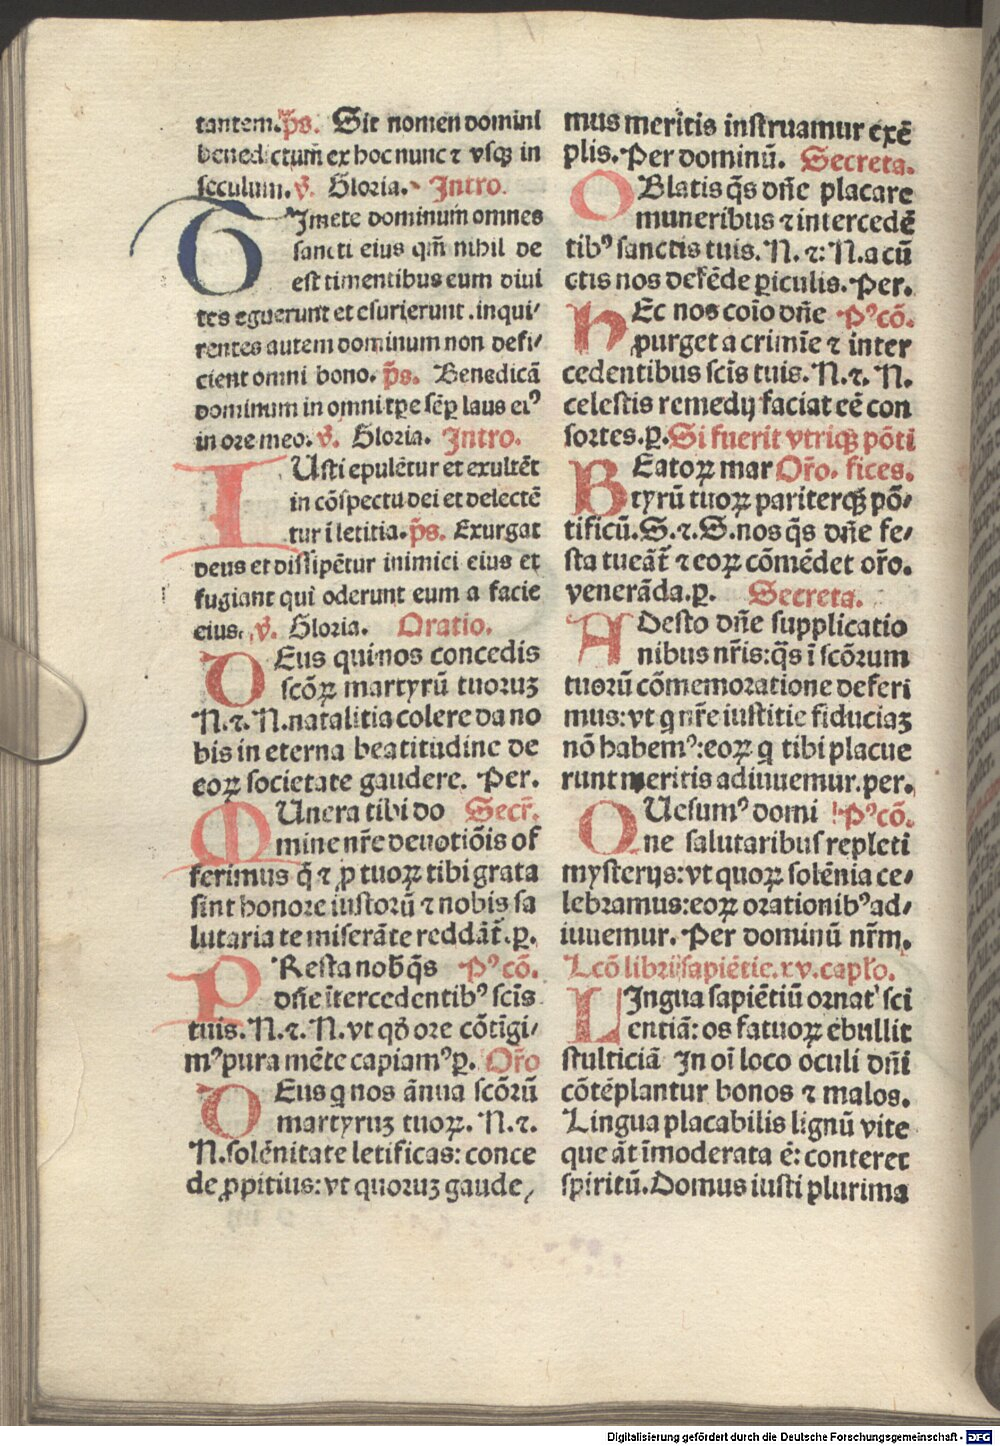 tantem. p̄s. Sit nomen domini
benedictum̄ ex hoc nunc ⁊ vsqꝫ in
seculum. v̄. Gloria. Intro.
TImete dominum omnes
sancti eius qm̄ nihil de
est timentibus eum diui
tes eguerunt et esurierunt .inqui⸗
rentes autem dominum non defi⸗
cient omni bono. p̄s. Benedicā
dominum in omni tꝑe sēꝑ laus eiꝰ
in ore meo. v̄. Gloria. Intro.
IUsti epulētur et exultēt
in cōspectu dei et delectē
tur ī letitia. p̄s. Exurgat
deus et dissipētur inimici eius et
fugiant qui oderunt eum a facie
eius. v̄. Gloria. Oratio.
DEus qui nos concedis
scōꝝ martyrū tuoruꝫ
N. ⁊. N. natalitia colere da no
bis in eterna beatitudine de
eoꝝ societate gaudere. Per.
MUnera tibi do Secr̄.
mine nr̄e deuotiōis of
ferimus q̄ ⁊ ꝓ tuoꝝ tibi grata
sint honore iustorū ⁊ nobis sa
lutaria te miserāte reddāt̄. ꝑ.
PResta nob̄ q̄s Pꝰcō.
dn̄e ītercedentibꝰ scīs
tuis. N. ⁊. N. vt qd̄ ore cōtigi⸗
mꝰ pura mēte capiamꝰ ꝑ. Or̄o
DEus q nos ānua scōrū
martyruꝫ tuoꝝ. N. ⁊.
N. solēnitate letificas: conce
de ꝓpitius: vt quoruꝫ gaude⸗
mus meritis instruamur exē
plis. Per dominū. Secreta.
OBlatis q̄s dn̄e placare
muneribus ⁊ intercedē
tibꝰ sanctis tuis. N. ⁊: N. a cū
ctis nos defēde ꝑiculis. Per.
HEc nos coīo dn̄e Pꝰcō.
purget a crimīe ⁊ inter
cedentibus scīs tuis. N. ⁊. N.
celestis remedij faciat eē con
sortes. ꝑ. Si fuerit vtriqꝫ pōti
BEatoꝝ mar Or̄o. fices.
tyrū tuoꝝ pariterqꝫ pō⸗
tificū. S. ⁊. S. nos q̄s dn̄e fe⸗
sta tueāt̄ ⁊ eoꝝ cōmēdet or̄o.
venerāda. ꝑ. Secreta.
ADesto dn̄e supplicatio
nibus nr̄is: q̄s ī scōrum
tuorū cōmemoratione deferi
mus: vt q nr̄e iustitie fiduciaꝫ
nō habemꝰ: eoꝝ q tibi placue
runt meritis adiuuemur. per.
QUesumꝰ domi Pꝰcō.
ne salutaribus repleti
mysterijs: vt quoꝝ solēnia ce⸗
lebramus: eoꝝ orationibꝰ ad⸗
iuuemur. Per dominū nr̄m.
Lcō libri sapiētie. xv. capl̄o.
LIngua sapiētiū ornat sci
entiā: os fatuoꝝ ebullit
stulticiā In oī loco oculi dn̄i
cōtēplantur bonos ⁊ malos.
Lingua placabilis lignū vite
que āt īmoderata ē: conteret
spiritū. Domus iusti plurima
Digitalisierung gefördert durch die Deutsche Forschungsgemeinschaft - DFG